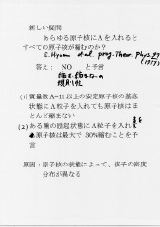 新しい疑問
あらゆる原子核にΛを入れると
すべての原子核が縮むのか?
E. Hiyama et al. prog. Theor. Phys. 97
(1997)
答え: NO と予言
縮む・縮まない
(1)質量数A=11以上の安定原子核の基底
状態にΛ粒子を入れても原子核はほ
とんど縮まない
(2)ある種の励起状態にΛ粒子を入れると
原子核は最大で30%縮むことを予
言
原因:原子核の状態によって、核子の密度
分布が異なる